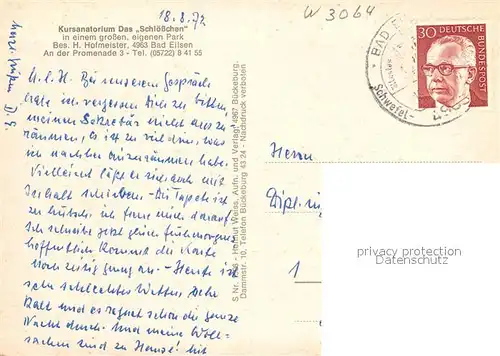 18.8.72
W 3064
Kursanatorium Das „Schlößchen"
in einem großen, eigenen Park
Bes. H. Hofmeister, 4963 Bad Eilsen
An der Promenade 3 - Tel. (05722) 8 41 55
M. l. H. Bei unserem Gespräch
habe ich vergessen Dich zu bitten
meinen Sekretär nicht aus zu
räumen, es ist zu viel drin, was ich
nachher einzuräumen habe.
Vielleicht läßt er sich doch mit
Inhalt schieben - Die Tapete ist
zu hübsch, ich freue mich darauf.
Ich schreibe jetzt ganz frühmorgens
hoffentlich kommt die Karte
noch zeitig genug an - Heute ist
ein schlechtes Wetter, sehr
kalt und es regnet schon die ganze
Nacht durch. Und meine Woll-
sachen sind zu Hause! Mit
S Nr. Helmut Weiss, Aufn. und Verlag, 4967 Bückeburg,
Dammstr. 10, Telefon Bückeburg 43 24 - Nachdruck verboten
BAD
Schwefel-
4963
30 DEUTSCHE
BUNDESPOST
Herrn
Dipl.
1
privacy protection
watermark